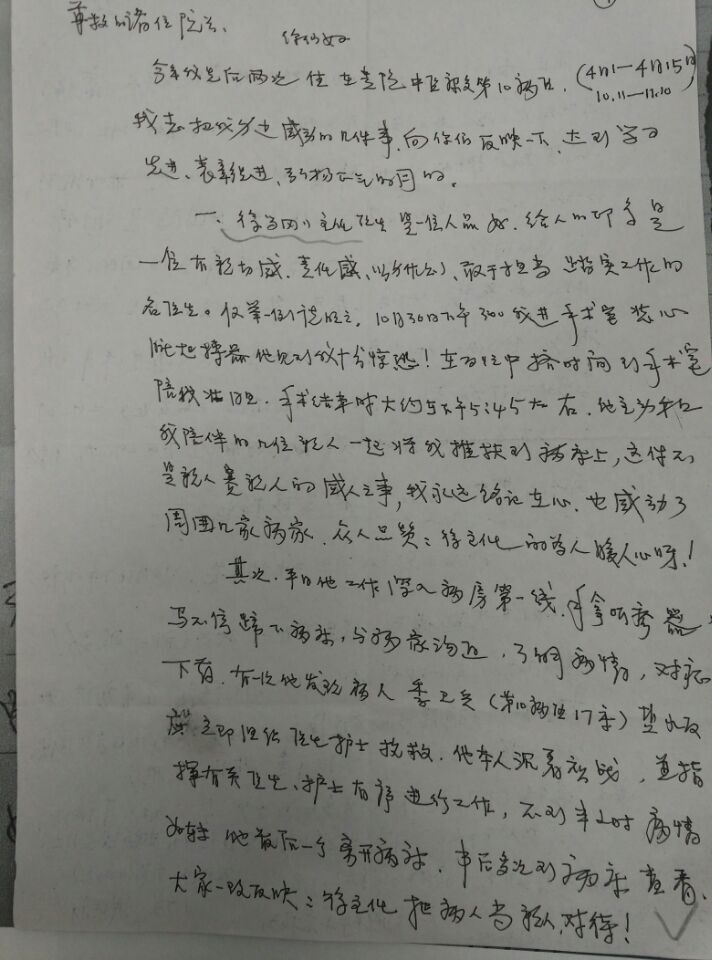 尊敬的诸位院长、
你们好
今年我先后两次住在贵院中医部第10病区. (4月1—4月15日
10.11—11.10)
我想把我身边感动的几件事,向你们反映一下,达到学习
先进、表彰先进、弘扬正气的目的。
一、徐 主任医生是一位人品好.给人的印象是
一位有亲切感.责任感、敢于担当 踏实工作的
名医生。仅举一例说明之,10月30日下午3:00我进手术室装心
脏起搏器他见到我十分惊恐!在百忙中 挤时间到手术室
陪我. 手术结束时大约5下午5:45左右.他主动和
我陪伴的几位亲人一起将我推扶到病床上,这件不
是亲人赛亲人的感人之事,我永远铭记在心.也感动了
周围几家病家.众人口赞:徐主任的为人暖人心呀!
其次.平日他工作深入病房第一线.手拿听疹器
马不停蹄下病床,与病家沟通,了解病情,对症
下药.有一次他发现病人季卫兵(第10病区17床)
立即组织医生护士抢救.他本人沉着应战,并指
挥有关医生、护士有序进行工作,不到半小时病情
好转他最后一个离开病床.事后多次到病床查看.
大家一致反映:徐主任把病人当亲人对待!